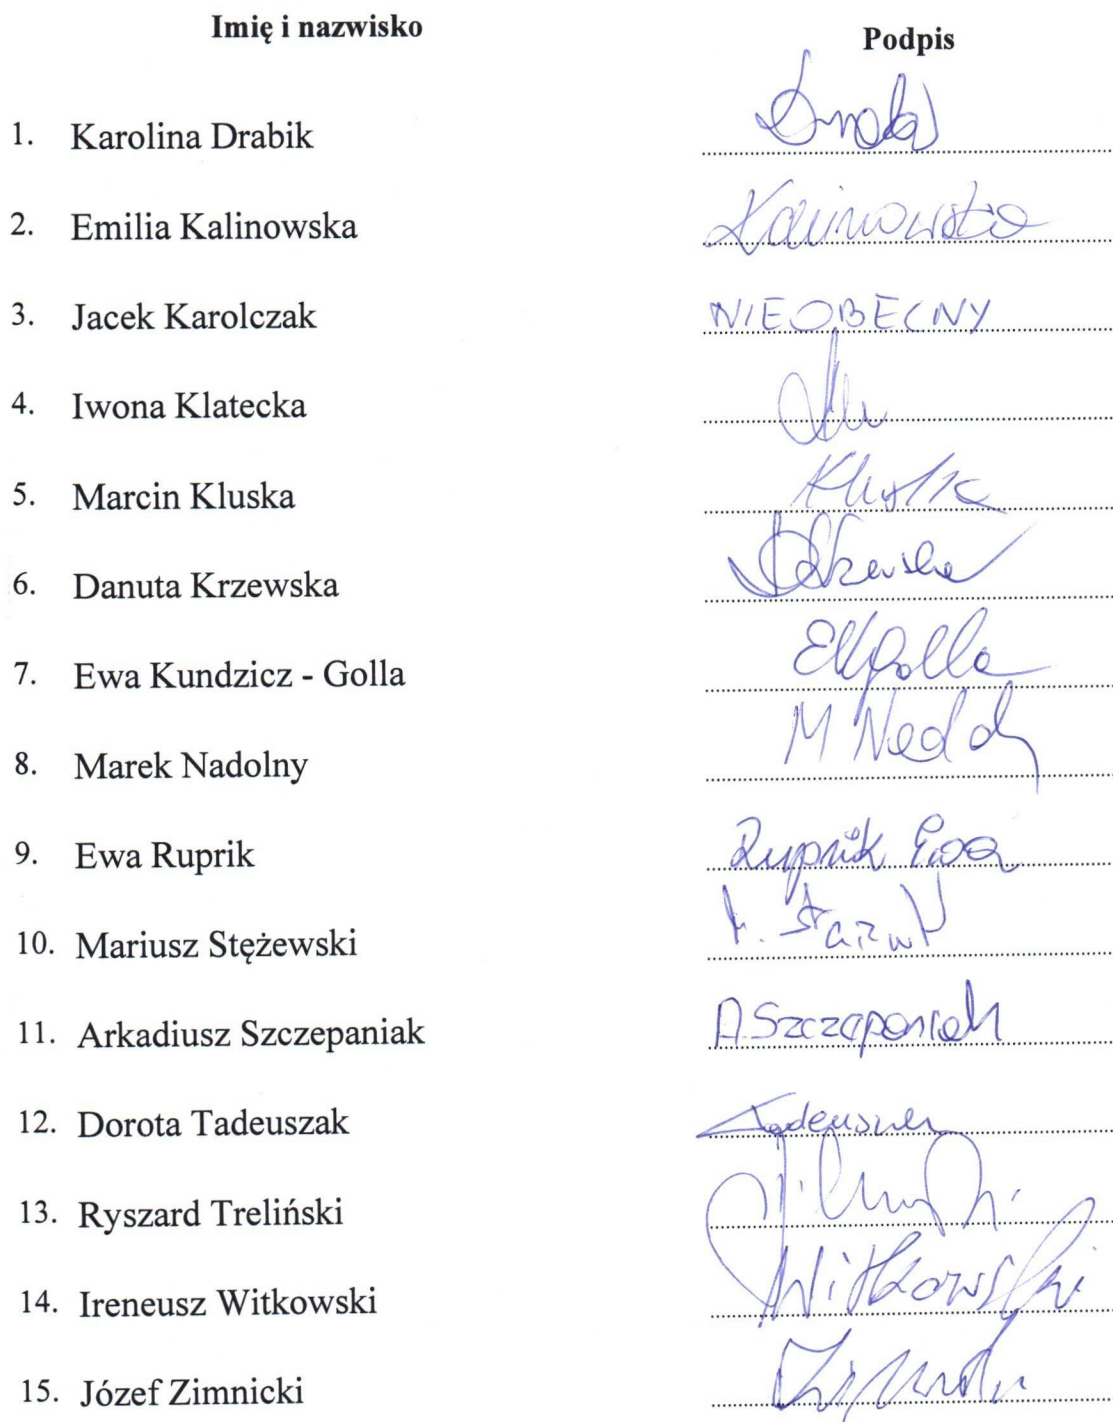 Imię i nazwisko Podpis
1. Karolina Drabik
2. Emilia Kalinowska Kalinowska
3. Jacek Karolczak NIEOBECNY
4. Iwona Klatecka
5. Marcin Kluska
6. Danuta Krzewska
7. Ewa Kundzicz - Golla EKGolla
8. Marek Nadolny
9. Ewa Ruprik Ruprik Ewa
10. Mariusz Stężewski
11. Arkadiusz Szczepaniak A.Szczepaniak
12. Dorota Tadeuszak
13. Ryszard Treliński
14. Ireneusz Witkowski Witkowski
15. Józef Zimnicki